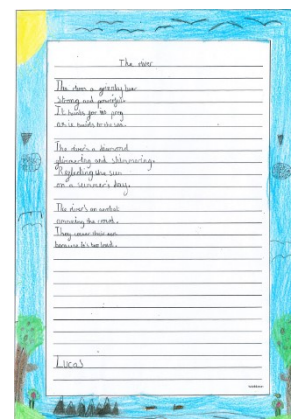 The river
The river a greedy liar
strong and powerful.
It hunts for its prey
as it travels to the sea.
The river's a diamond
glimmering and shimmering.
Reflecting the sun
on a summer's day.
The river's an
annoying the crowd.
They cover their ears
because he's too loud.
Lucas